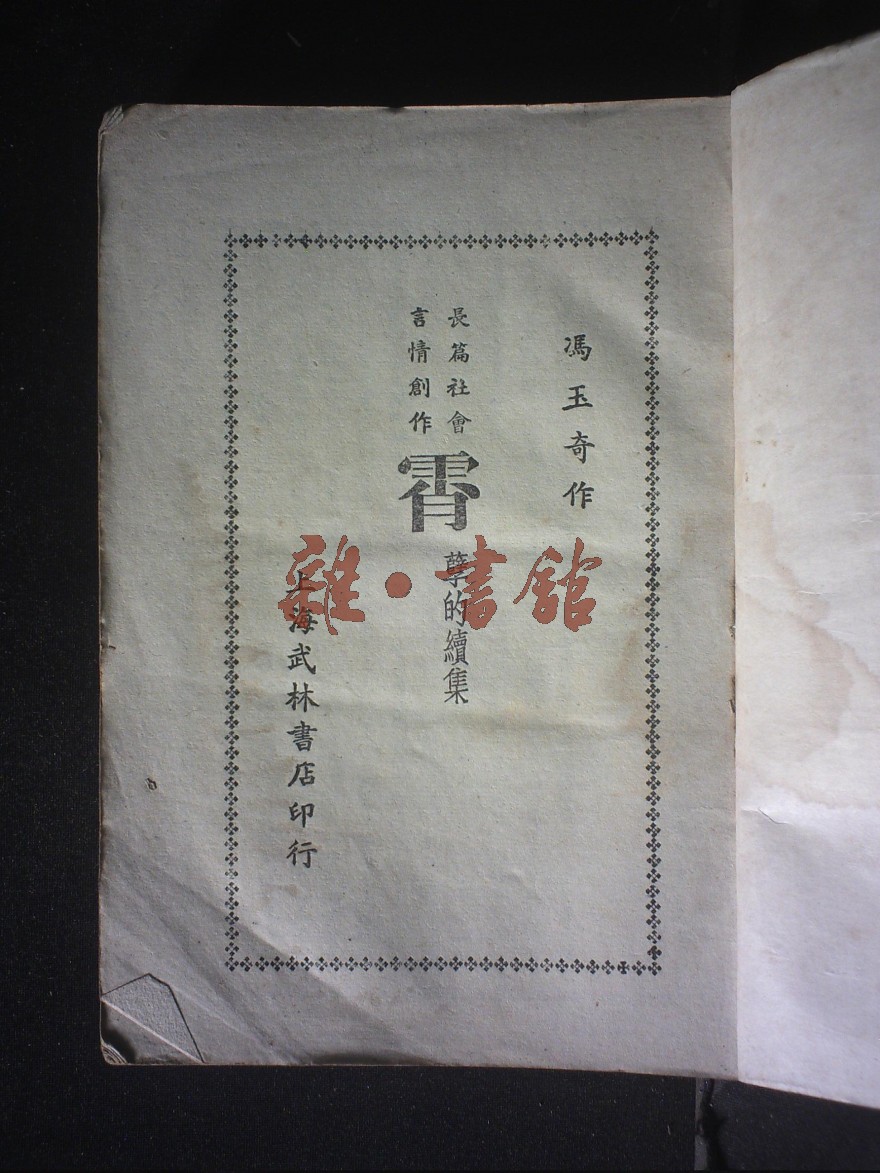 馮玉奇作
長篇社會
言情創作
霄
孽的續集
上海武林書店印行
雜·書館